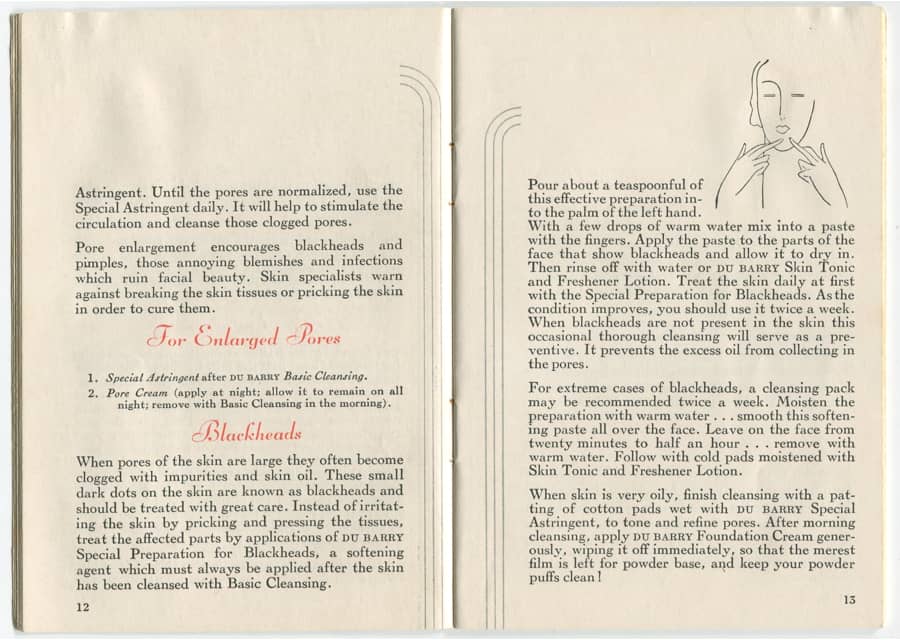 Astringent. Until the pores are normalized, use the
Special Astringent daily. It will help to stimulate the
circulation and cleanse those clogged pores.
Pore enlargement encourages blackheads and
pimples, those annoying blemishes and infections
which ruin facial beauty. Skin specialists warn
against breaking the skin tissues or pricking the skin
in order to cure them.
For Enlarged Pores
1. Special Astringent after DU BARRY Basic Cleansing.
2. Pore Cream (apply at night; allow it to remain on all
night; remove with Basic Cleansing in the morning).
Blackheads
When pores of the skin are large they often become
clogged with impurities and skin oil. These small
dark dots on the skin are known as blackheads and
should be treated with great care. Instead of irritat-
ing the skin by pricking and pressing the tissues,
treat the affected parts by applications of DU BARRY
Special Preparation for Blackheads, a softening
agent which must always be applied after the skin
has been cleansed with Basic Cleansing.
12
Pour about a teaspoonful of
this effective preparation in-
to the palm of the left hand.
With a few drops of warm water mix into a paste
with the fingers. Apply the paste to the parts of the
face that show blackheads and allow it to dry in.
Then rinse off with water or DU BARRY Skin Tonic
and Freshener Lotion. Treat the skin daily at first
with the Special Preparation for Blackheads. As the
condition improves, you should use it twice a week.
When blackheads are not present in the skin this
occasional thorough cleansing will serve as a pre-
ventive. It prevents the excess oil from collecting in
the pores.
For extreme cases of blackheads, a cleansing pack
may be recommended twice a week. Moisten the
preparation with warm water . . . smooth this soften-
ing paste all over the face. Leave on the face from
twenty minutes to half an hour . . . remove with
warm water. Follow with cold pads moistened with
Skin Tonic and Freshener Lotion.
When skin is very oily, finish cleansing with a pat-
ting of cotton pads wet with DU BARRY Special
Astringent, to tone and refine pores. After morning
cleansing, apply DU BARRY Foundation Cream gener-
ously, wiping it off immediately, so that the merest
film is left for powder base, and keep your powder
puffs clean!
13